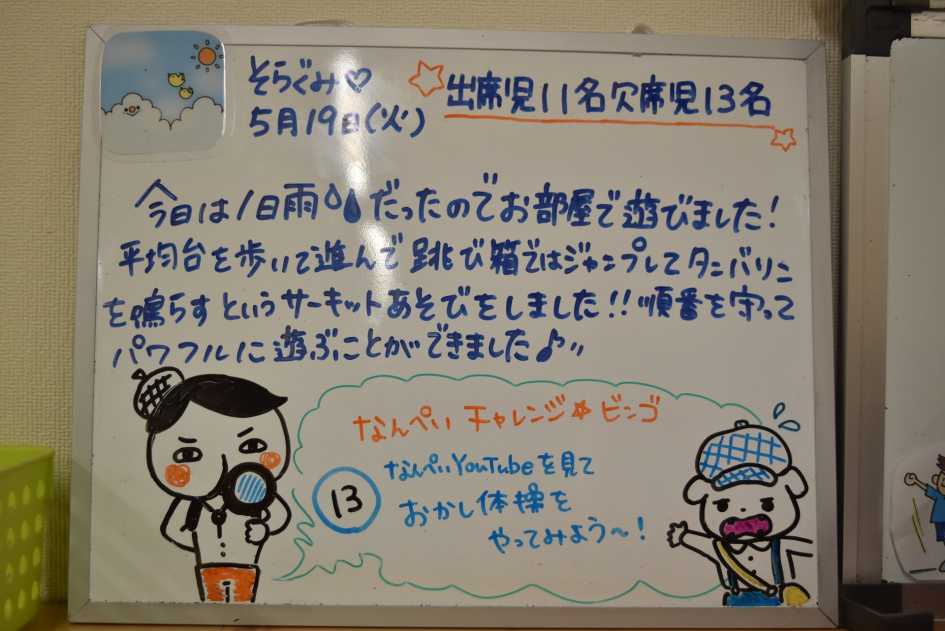 そらぐみ♡
5月19日(火)
☆出席児11名欠席児13名☆
今日は1日雨だったのでお部屋で遊びました!
平均台を歩いて進んで跳び箱ではジャンプしてタンバリン
を鳴らすというサーキットあそびをしました!!順番を守って
パワフルに遊ぶことができました♪〃
なんぺいチャレンジ☆ビンゴ
13
なんぺいYouTubeを見て
おかし体操を
やってみよう〜!